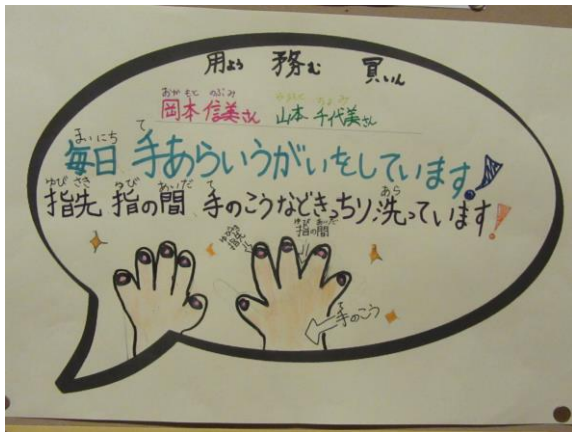 用よう 務む 買いん
おかもと のぶみ
岡本信美さん 山本千代美さん
まいにち て
毎日 手あらいうがいをしています!
ゆび さき ゆび あいだ て あら
指先 指の間 手のこうなどきっちり洗っています!
ゆびさき ゆび あいだ
指先 指の間
て
手のこう